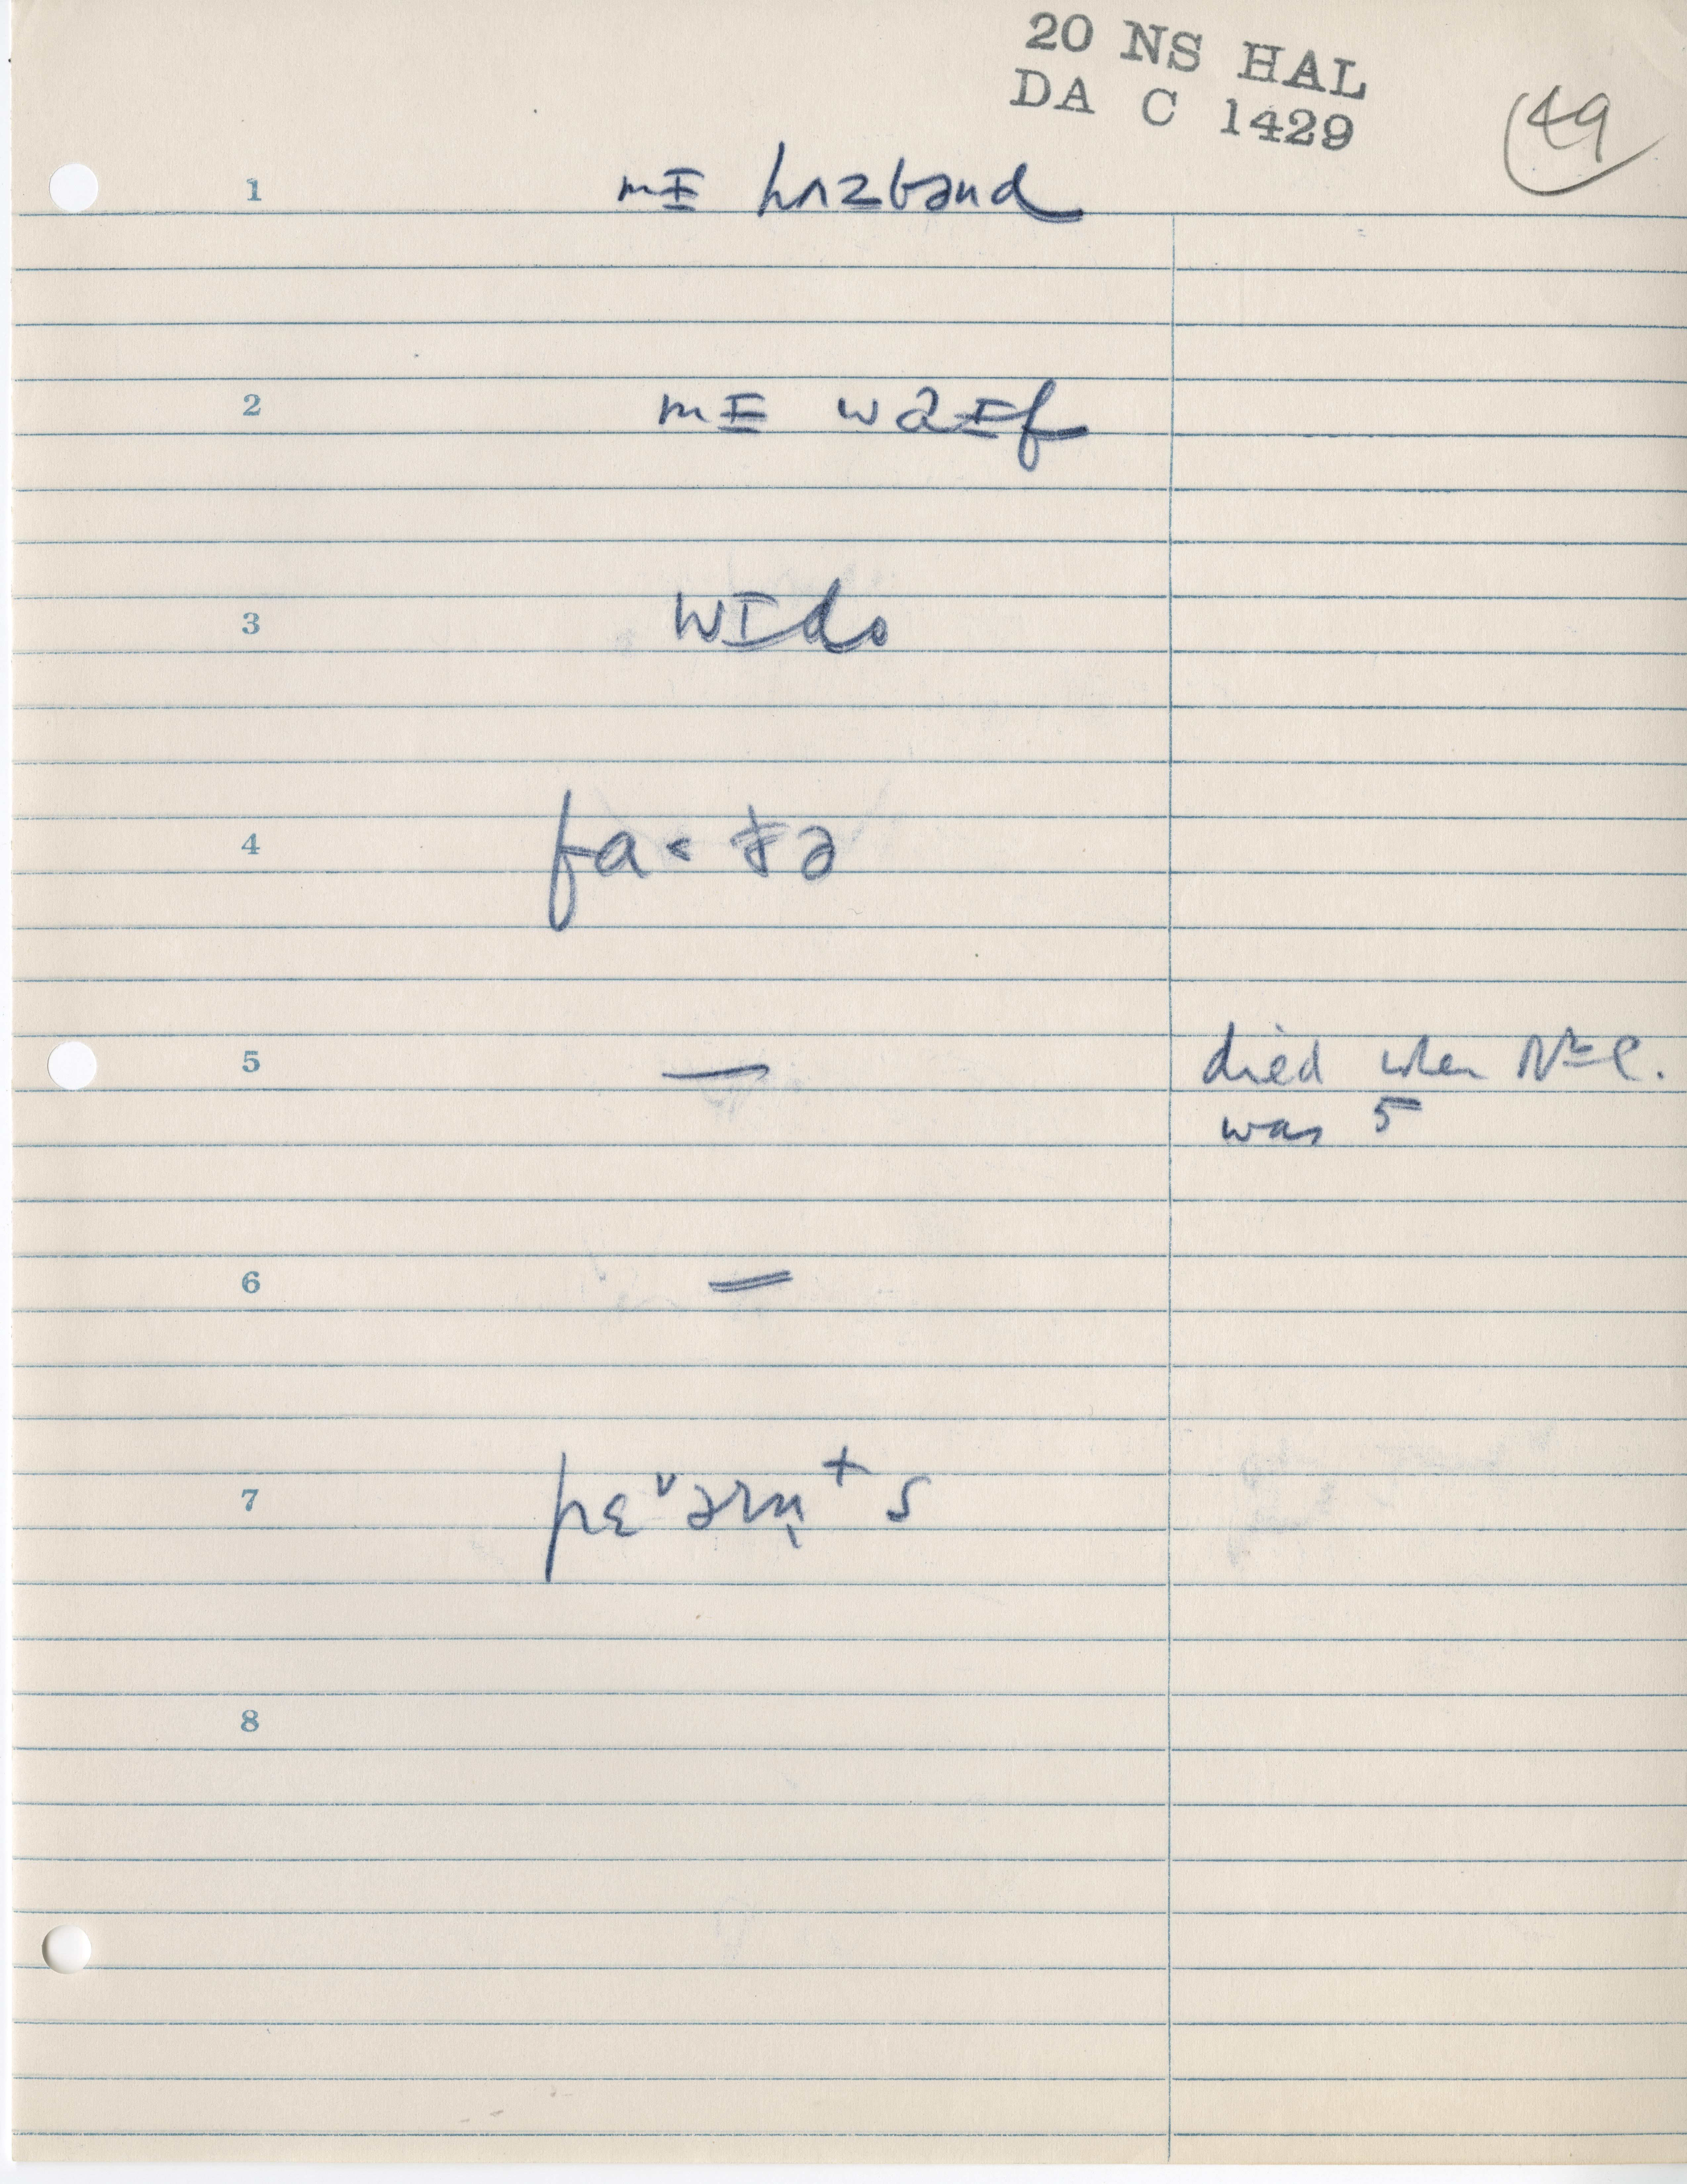 20 NS HAL
DA C 1429
49
1 mɪ hʌzbənd
2 mɪ waɪf
3 wɪdo
4 fa˂ðə
5 — died when
was 5
6 —
7 pɛ˅ərn̩⁺s
8